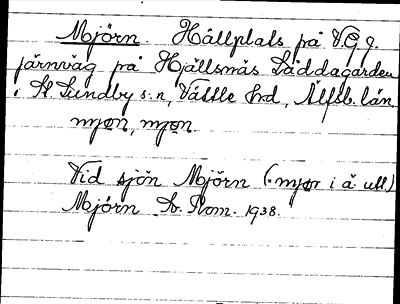 Mjörn. Hållplats på V.G.J.
järnväg på Hjällsnäs Säddagården
i St. Lundby s:n, Vättle hd, Älfsb. län.
mjøn, mjøn.
Vid sjön Mjörn (mjør i ä. utt.)
Mjörn St. Kom. 1938.